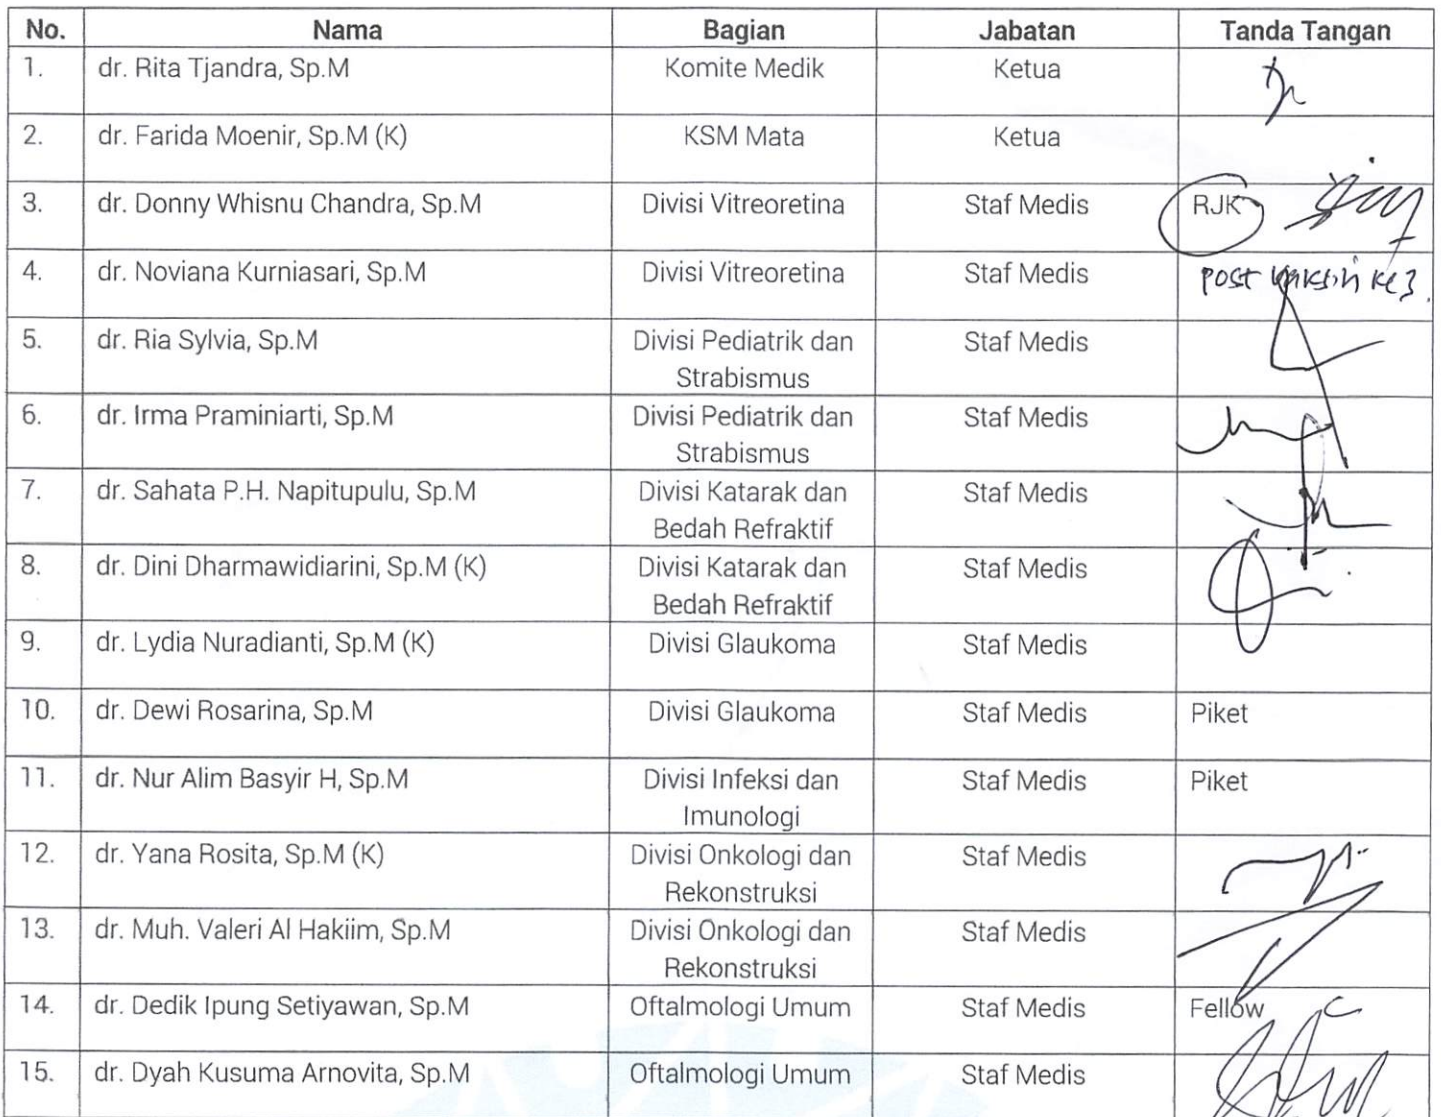 No. Nama Bagian Jabatan Tanda Tangan
1. dr. Rita Tjandra, Sp.M Komite Medik Ketua
2. dr. Farida Moenir, Sp.M (K) KSM Mata Ketua
3. dr. Donny Whisnu Chandra, Sp.M Divisi Vitreoretina Staf Medis RJK
4. dr. Noviana Kurniasari, Sp.M Divisi Vitreoretina Staf Medis post vaksin ke 3.
5. dr. Ria Sylvia, Sp.M Divisi Pediatrik dan Staf Medis
Strabismus
6. dr. Irma Praminiarti, Sp.M Divisi Pediatrik dan Staf Medis
Strabismus
7. dr. Sahata P.H. Napitupulu, Sp.M Divisi Katarak dan Staf Medis
Bedah Refraktif
8. dr. Dini Dharmawidiarini, Sp.M (K) Divisi Katarak dan Staf Medis
Bedah Refraktif
9. dr. Lydia Nuradianti, Sp.M (K) Divisi Glaukoma Staf Medis
10. dr. Dewi Rosarina, Sp.M Divisi Glaukoma Staf Medis Piket
11. dr. Nur Alim Basyir H, Sp.M Divisi Infeksi dan Staf Medis Piket
Imunologi
12. dr. Yana Rosita, Sp.M (K) Divisi Onkologi dan Staf Medis
Rekonstruksi
13. dr. Muh. Valeri Al Hakiim, Sp.M Divisi Onkologi dan Staf Medis
Rekonstruksi
14. dr. Dedik Ipung Setiyawan, Sp.M Oftalmologi Umum Staf Medis Fellow
15. dr. Dyah Kusuma Arnovita, Sp.M Oftalmologi Umum Staf Medis